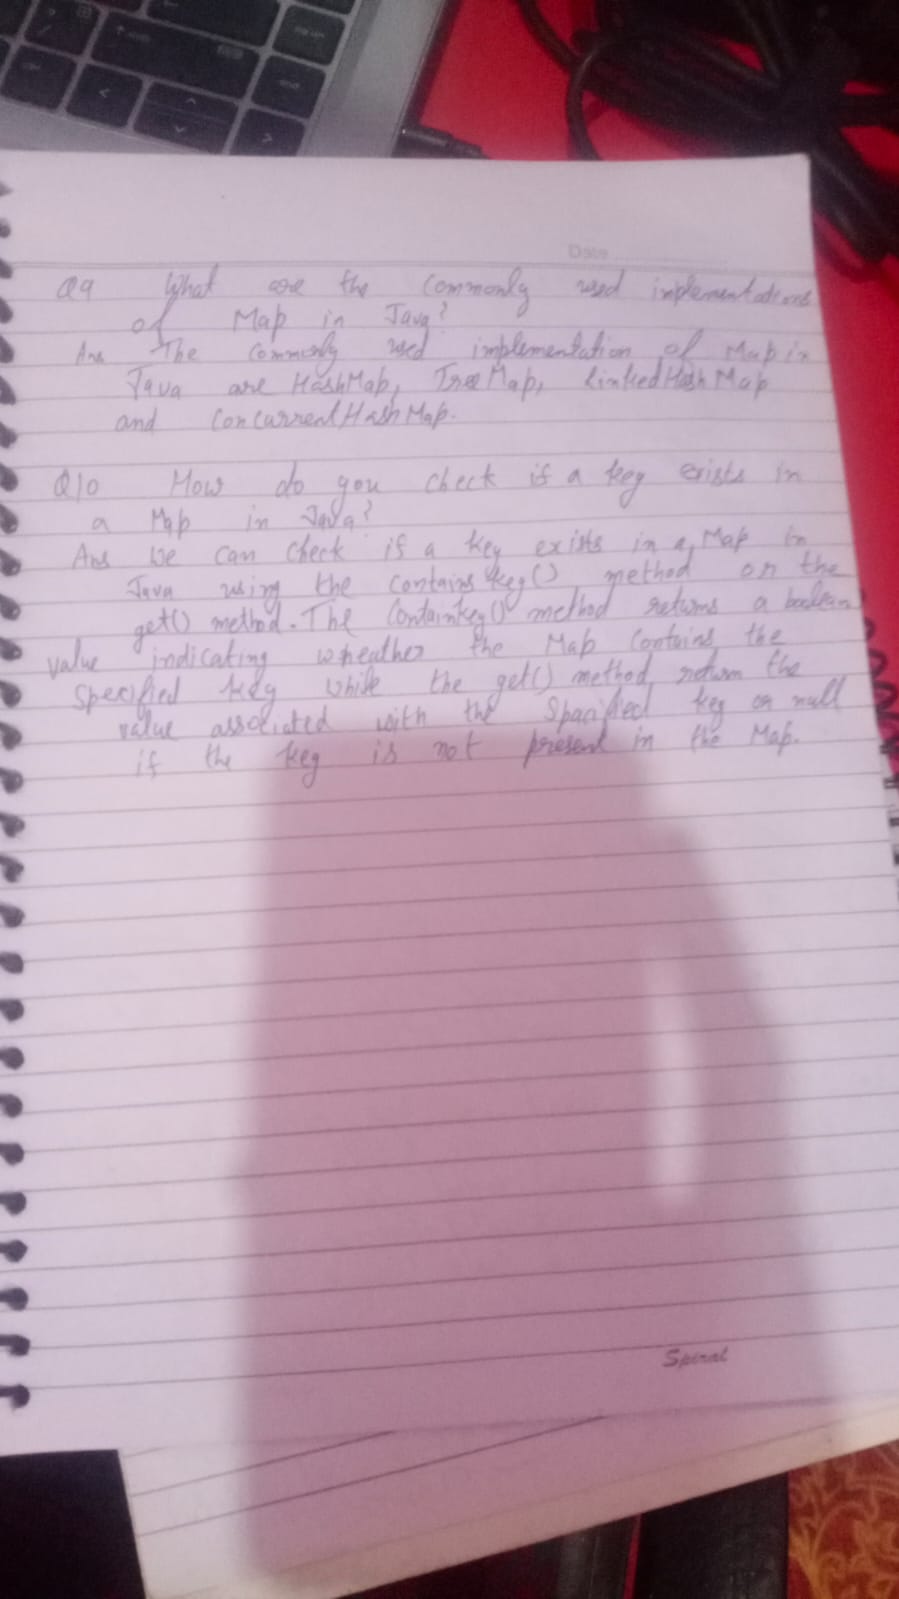 Date
Q9 What are the commonly used implementations
of Map in Java?
Ans The commonly used implementation of Map in
Java are HashMap, TreeMap, linkedHashMap
and ConcurrentHashMap.
Q10 How do you check if a key exists in
a Map in Java?
Ans We can check if a key exists in a Map in
Java using the containskey() method or the
get() method. The Containkey() method returns a boolean
value indicating wheather the Map contains the
specified key while the get() method return the
value associated with the Spacified key or null
if the key is not present in the Map.
Spiral